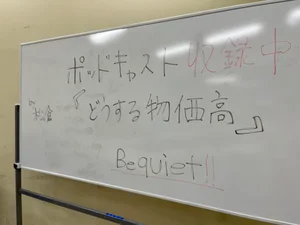 ポッドキャスト 収録中
『どうする物価高』
Bequiet!!